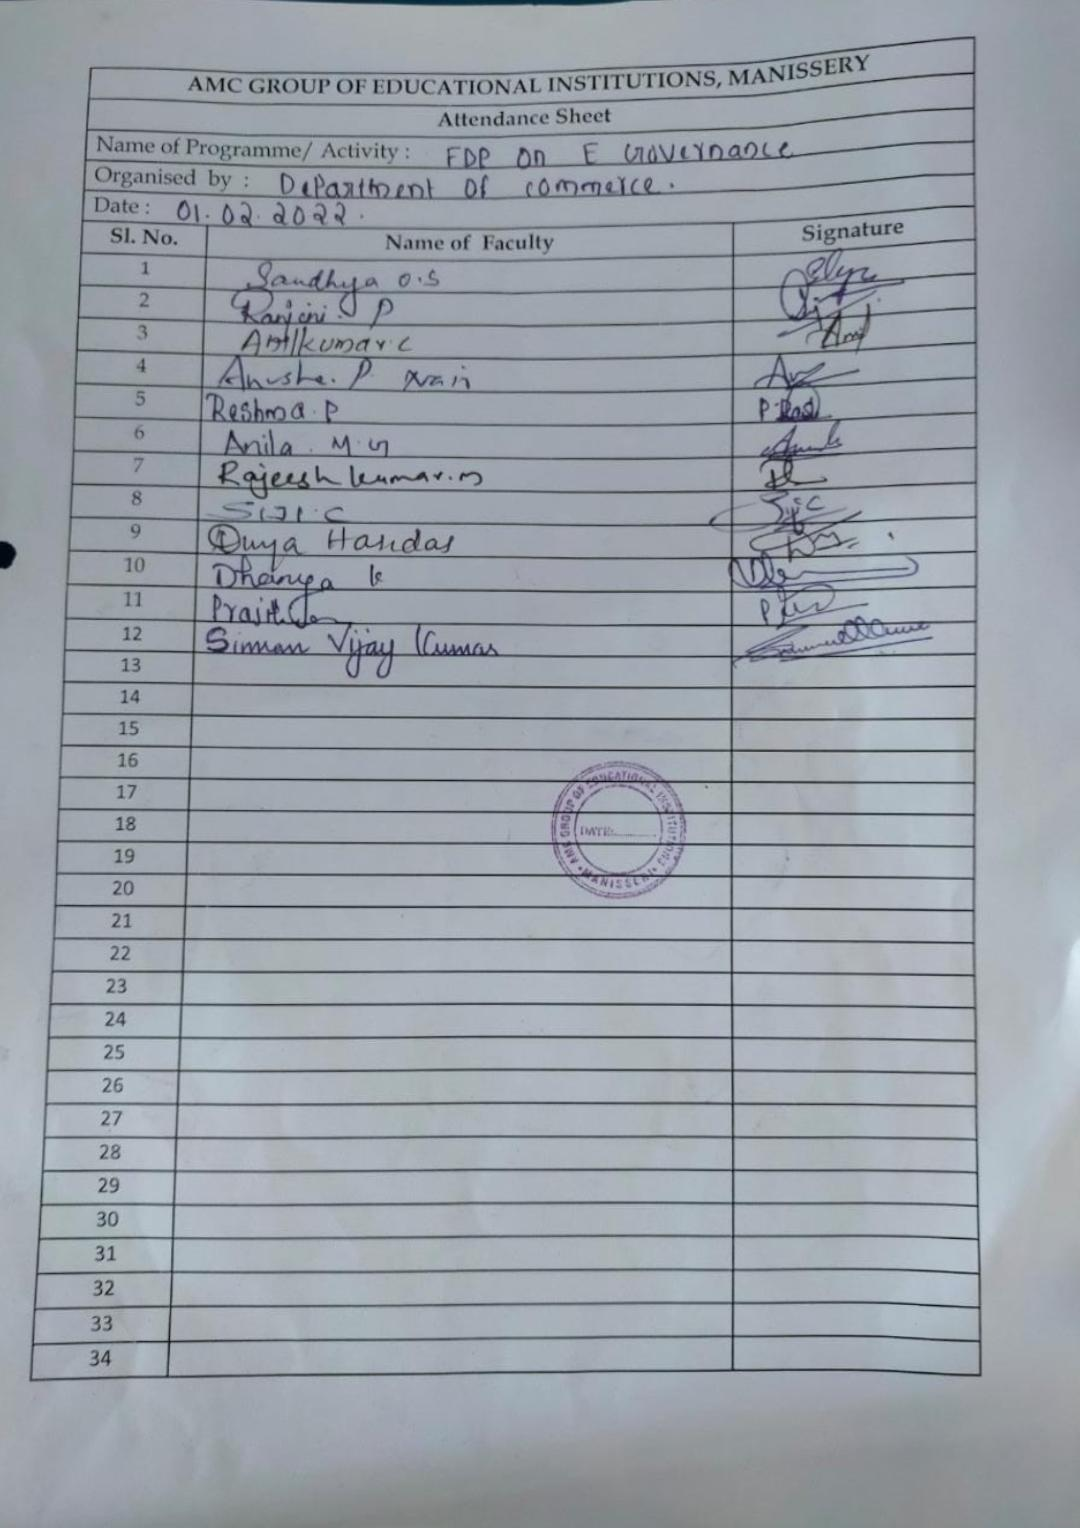 AMC GROUP OF EDUCATIONAL INSTITUTIONS, MANISSERY
Attendance Sheet
Name of Programme/ Activity : FDP on E Governance
Organised by : Department of commerce.
Date : 01.02.2022.
Sl. No. Name of Faculty Signature
1 Sandhya O.S
2 Ranjini P
3 Anilkumar.C
4 Anusha. P. Nair
5 Reshma.P
6 Anila. M.G
7 Rajeesh kumar.m
8 SIJI.C Siji C
9 Divya Haridas
10 Dhanya k
11
12 Simman Vijay Kumar
13
14
15
16
17
18
19
20
21
22
23
24
25
26
27
28
29
30
31
32
33
34
AMC GROUP OF EDUCATIONAL INSTITUTIONS
DATE:
MANISSERI